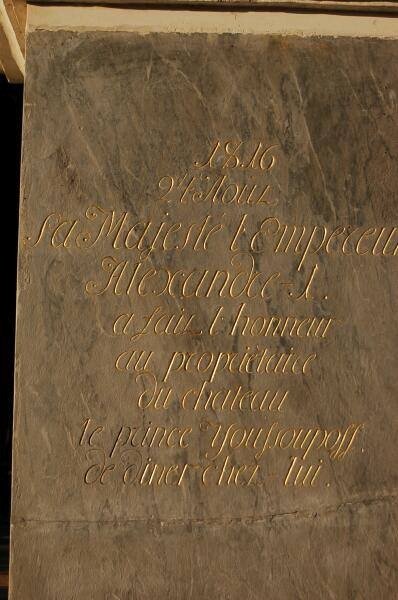 1816
24 Aout
Sa Majesté l'Empereur
Alexandre-1.
a fait l'honneur
au propriètaire
du chateau
le prince Youssoupoff.
de diner chez-lui.